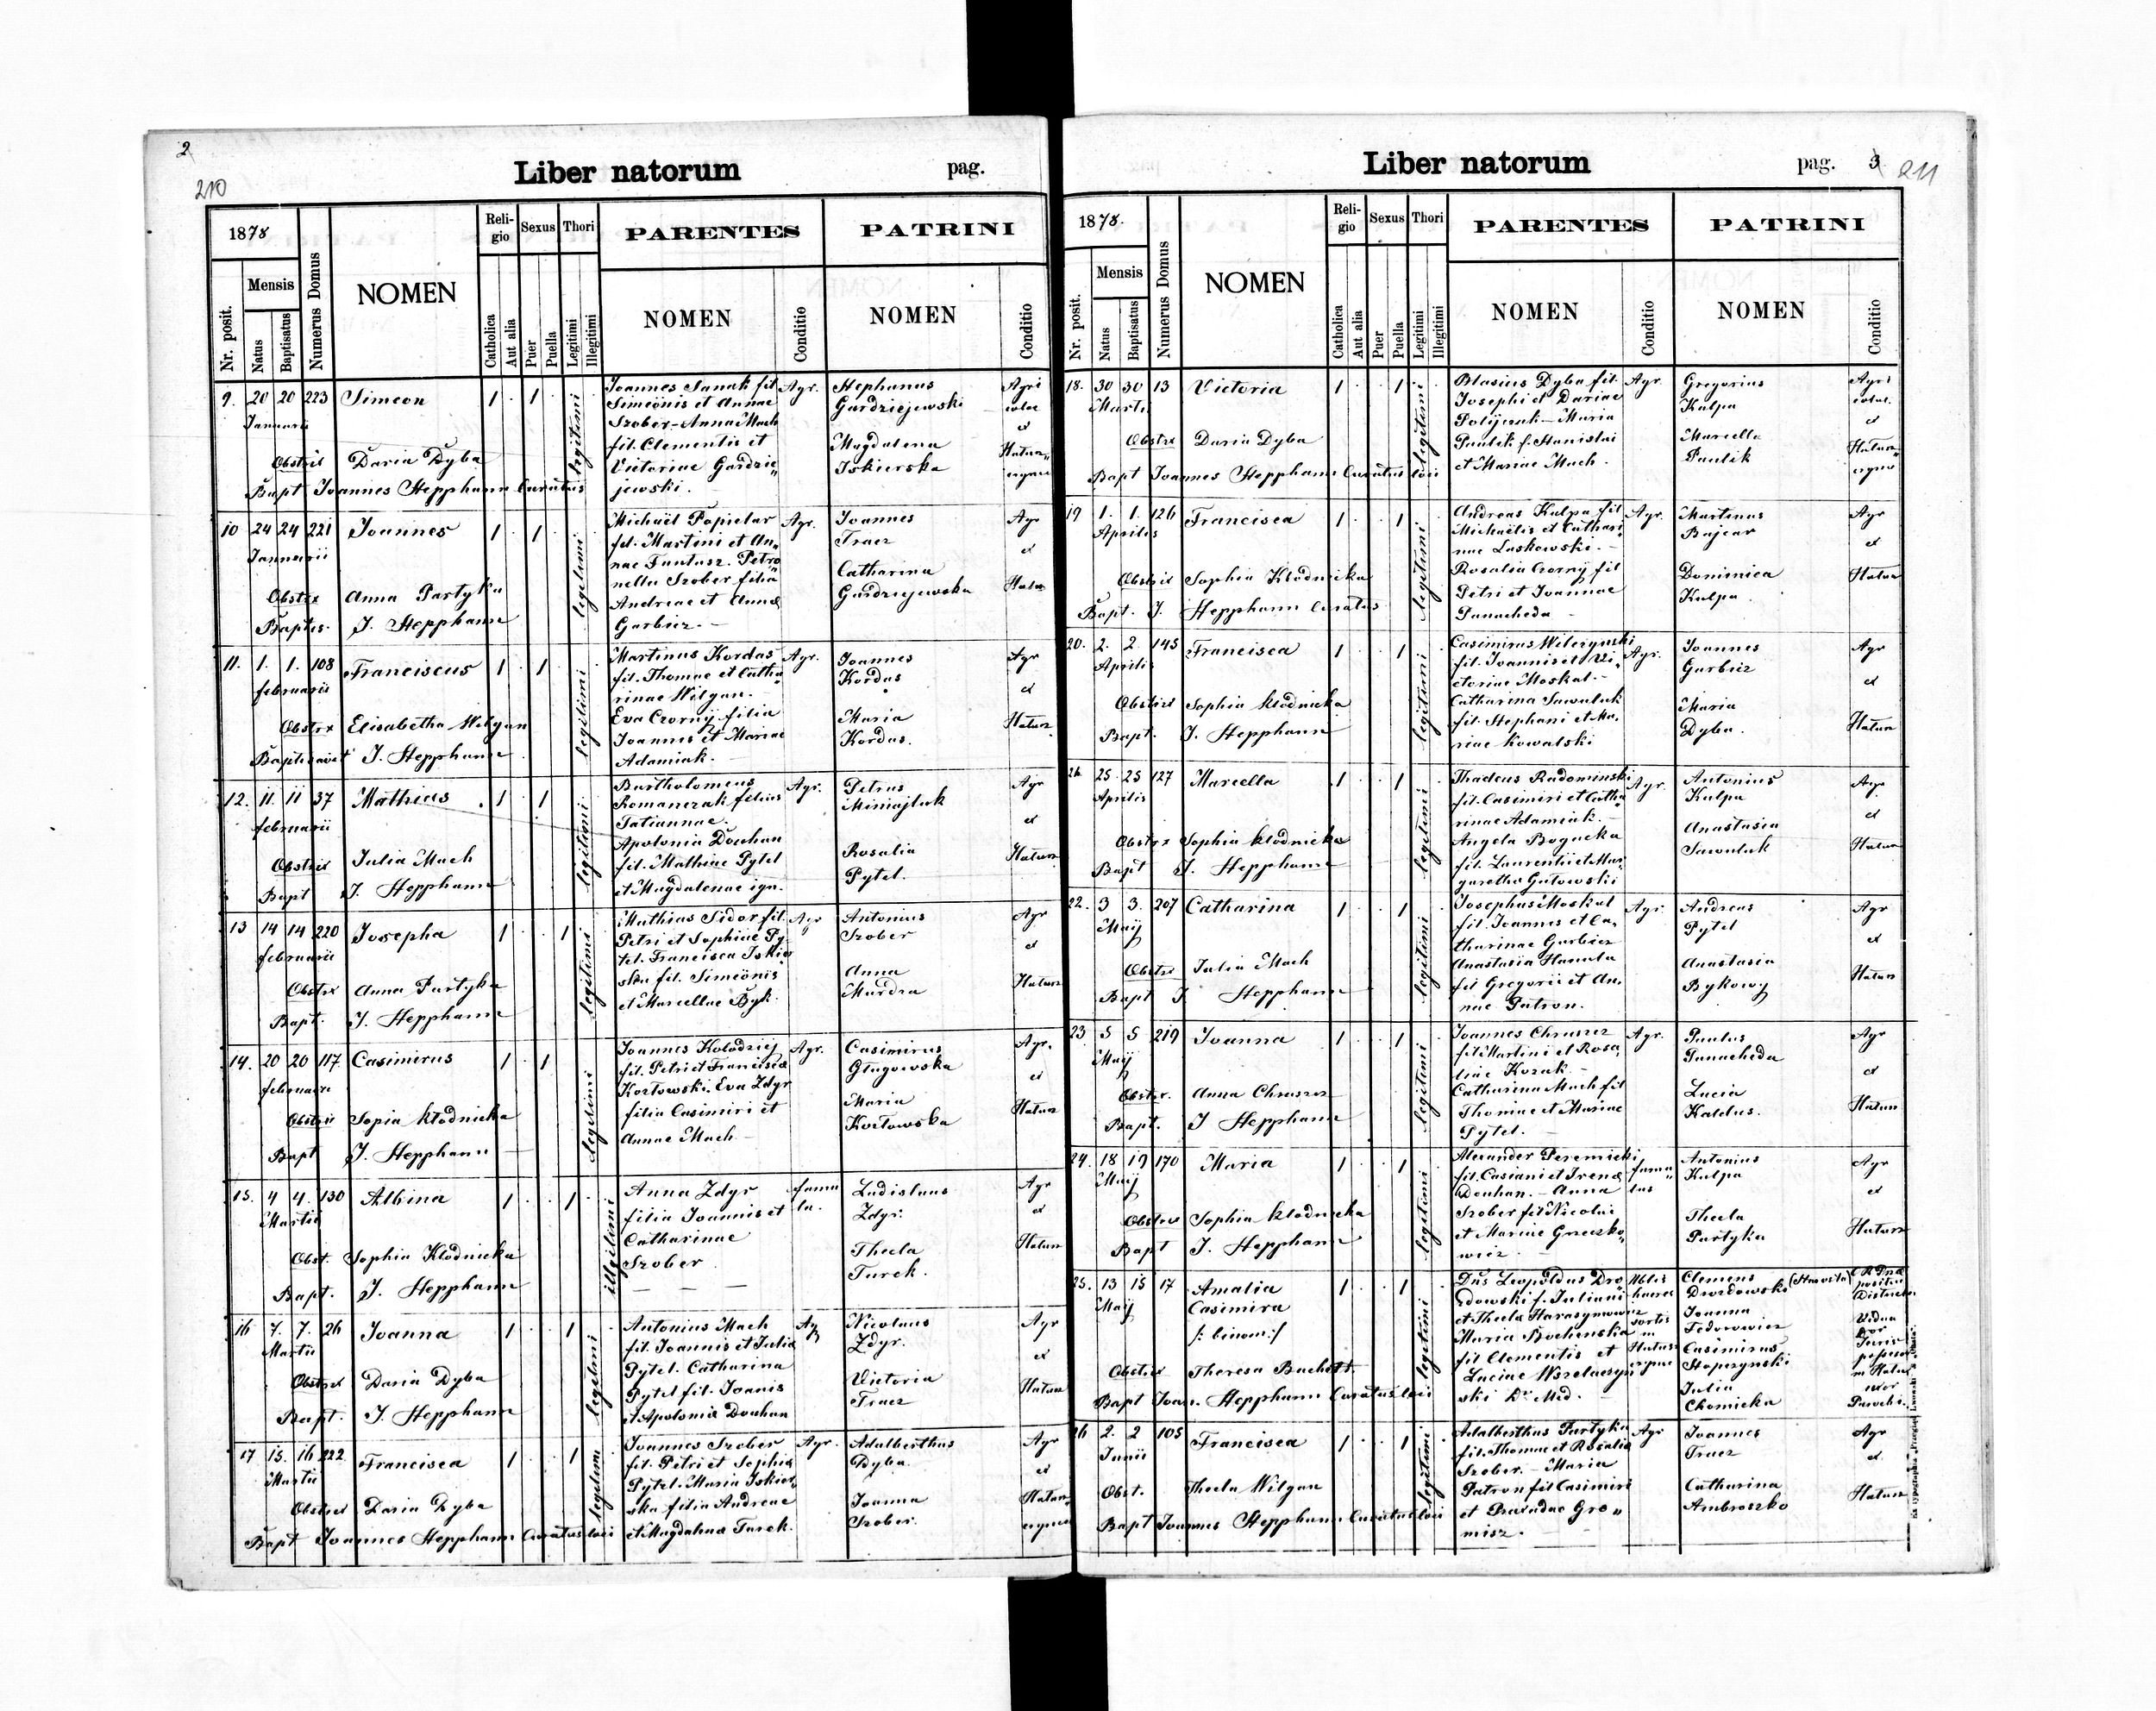 2
210
Liber natorum pag.
1878
Nr. posit.
Mensis
Natus
Baptisatus
Numerus Domus
NOMEN
Reli-
gio
Catholica
Aut alia
Sexus
Puer
Puella
Thori
Legitimi
Illegitimi
PARENTES
NOMEN
Conditio
PATRINI
NOMEN
Conditio
9. 20 20 223 Simeon 1 1
Januarii
Obstrix Daria Dyba
Bapt Joannes Hepphann Curatus
legitimi
Joannes Sanak fil
Simeonis et Annae
Szober - Anna Mach
fil. Clementis et
Victoriae Gardzie
jewski.
Agr.
Stephanus
Gardziejewski
Magdalena
Iskierska
Agri
colae
et
10 24 24 221 Joannes 1 1
Januarii
Obstrx Anna Partyka
Baptis. J. Hepphann
legitimi
Michael Popielar
fil. Martini et An
nae Fantasz. Petro
nella Szober filia
Andreae et Annae
Garbicz.
Agr.
Joannes
Tracz
Catharina
Gardziejewska
Agr
et
11. 1. 1. 108 Franciscus 1 1
februarii
Obstrx Elisabetha Wilgan
Baptisavit J. Hepphann
legitimi
Martinus Kordas
fil. Thomae et Catha
rinae Wilgan.
Eva Czorny filia
Joannis et Mariae
Adamiak.
Agr.
Joannes
Kordas
Maria
Kordas.
Agr
et
12. 11. 11 37 Mathias 1 1
februarii
Obstrix Julia Mach
Bapt J. Hepphann
legitimi
Bartholomeus
Romanczak filius
Tatiannae.
Apolonia Douhan
fil. Mathiae Pytel
et Magdalenae ign.
Agr.
Petrus
Miniajluk
Rosalia
Pytel.
Agr
et
13 14 14 220 Josepha 1 1
februarii
Obstrx Anna Partyka
Bapt. J. Hepphann
legitimi
Mathias Sidor fil.
Petri et Sophiae Py
tel. Francisca Iskier
ska fil. Simeonis
et Marcellae Byk.
Agr
Antonius
Szober
Anna
Agr
et
14. 20 20 117 Casimirus 1 1
februarii
Obstrix Sopia Kłodnicka
Bapt J. Hepphann
legitimi
Joannes Kolodziej
fil. Petri et Francisca
Kozłowski. Eva Zdyr
filia Casimiri et
Annae Mach
Agr.
Casimirus
Maria
Kozłowska
Agr.
et
15. 4 4. 130 Albina 1 1
Martii
Obst. Sophia Kłodnicka
Bapt. J. Hepphann
illegitimi
Anna Zdyr
filia Joannis et
Catharinae
Szober
famu
la.
Ladislaus
Zdyr.
Thecla
Turek.
Agr
et
16 7. 7. 26 Joanna 1 1
Martii
Obstrx Daria Dyba
Bapt. J. Hepphann
legitimi
Antonius Mach
fil. Joannis et Julia
Pytel. Catharina
Pytel fil. Joanis
et Apolonia Douhan
Nicolaus
Zdyr.
Victoria
Tracz
Agr
et
17 15. 16 222 Francisca 1 1
Martii
Obstrix Daria Dyba
Bapt Joannes Hepphann Curatus loci
legitimi
Joannes Szober
fil. Petri et Sophia
Pytel. Maria Iskier
ska filia Andreae
et Magdalena Turek.
Agr.
Adalberthus
Dyba
Joanna
Szober.
Agr
et
Liber natorum pag. 3
211
1878.
Nr. posit.
Mensis
Natus
Baptisatus
Numerus Domus
NOMEN
Reli-
gio
Catholica
Aut alia
Sexus
Puer
Puella
Thori
Legitimi
Illegitimi
PARENTES
NOMEN
Conditio
PATRINI
NOMEN
Conditio
18. 30 30 13 Victoria 1 1
Martii
Obstrx Daria Dyba
Bapt Joannes Hepphann Curatus loci
legitimi
Blasius Dyba fil.
Josephi et Dariae
Maria
Paulik f. Stanislai
et Mariae Mach.
Agr.
Gregorius
Kulpa
Marcella
Paulik
Agri
colae
et
19 1. 1. 126 Francisca 1 1
Aprilis
Obstrix Sophia Kłodnicka
Bapt. J. Hepphann Curatus
legitimi
Andreas Kulpa fil
Michaelis et Cathari
nae Laskowski.
Rosalia Czorny fil
Petri et Joannae
Panacheda
Agr.
Martinus
Bajcar
Dominica
Kulpa
Agr
et
20. 2. 2. 145 Francisca 1 1
Aprilis
Obstrix Sophia Kłodnicka
Bapt. J. Hepphann
legitimi
Casimirus Wilczynski
fil. Joannis et Vi
ctoriae Moskal.
Catharina Sawuluk
fil. Stephani et Ma
riae Kowalski
Agr.
Joannes
Garbicz
Maria
Dyba.
Agr
et
25. 25 127 Marcella 1 1
Aprilis
Obstrx Sophia Kłodnicka
Bapt J. Hepphann
legitimi
Thadeus Radominski
fil. Casimiri et Catha
rinae Adamiak.
Angela Bogucka
fil. Laurentii et Mar
garetha Gutowski
Agr.
Antonius
Kulpa
Anastasia
Sawuluk
Agr
et
22. 3 3. 207 Catharina 1 1
Maij
Obstrx Julia Mach
Bapt J. Hepphann
legitimi
Josephus Moskal
fil. Joannes et Ca
tharinae Garbicz
Anastasia Hanula
fil Gregorii et An
nae Patron.
Agr.
Andreas
Pytel
Anastasia
Bykowy
Agr
et
23 5 5 219 Joanna 1 1
Maij
Obstr. Anna Chruszcz
Bapt. J Hepphann
legitimi
Joannes Chruszcz
fil Martini et Rosa
liae Kozak.
Catharina Mach fil
Thomae et Mariae
Pytel.
Agr.
Paulus
Panacheda
Lucia
Kaldus.
Agr
et
24. 18 19 170 Maria 1 1
Maij
Obstrx Sophia Kłodnicka
Bapt J. Hepphann
legitimi
Alexander Peremicki
fil. Casiani et Irena
Douhan. - Anna
Szober fil Nicolai
et Mariae Greczko
wicz.
famu
lus
Antonius
Kulpa
Thecla
Partyka
Agr
et
25. 13 15 17 Amalia 1 1
Maij Casimira
/: binom :/
Obstrix Theresa Bachott
Bapt Joan. Hepphann Curatus loci
legitimi
Dus Leopoldus Dro
zdowski f. Juliani
et Thecla Harasymowicz
Maria Bochenska
fil Clementis et
Luciae
ski Dr Med.
Clemens
Joanna
Fedorowicz
Casimirus
Stopczynski
Julia
Chomicka
Vidua
26 2. 2 105 Francisca 1 1
Junii
Obst. Thecla Wilgan
Bapt Joannes Hepphann Curatus loci
legitimi
Adalberthus Partyka
fil. Thomae et Rosalia
Szober. - Maria
Patron fil Casimiri
et Gro
misz.
Agr
Joannes
Tracz
Catharina
Ambroszko
Agr
et